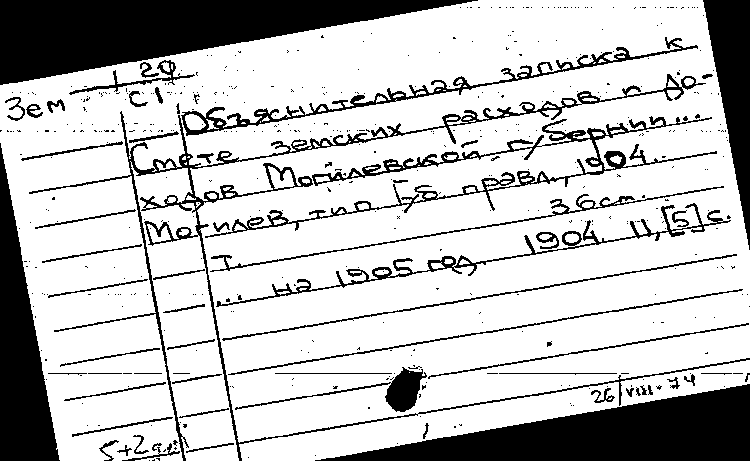 Зем 20
С1
Объяснительная записка к
Смете земских расходов и до-
ходов Могилевской губернии...
Могилев, тип Губ. правл., 1904.
36 см.
т.
... на 1905 год. 1904. II, [5] с.
26/VIII-74